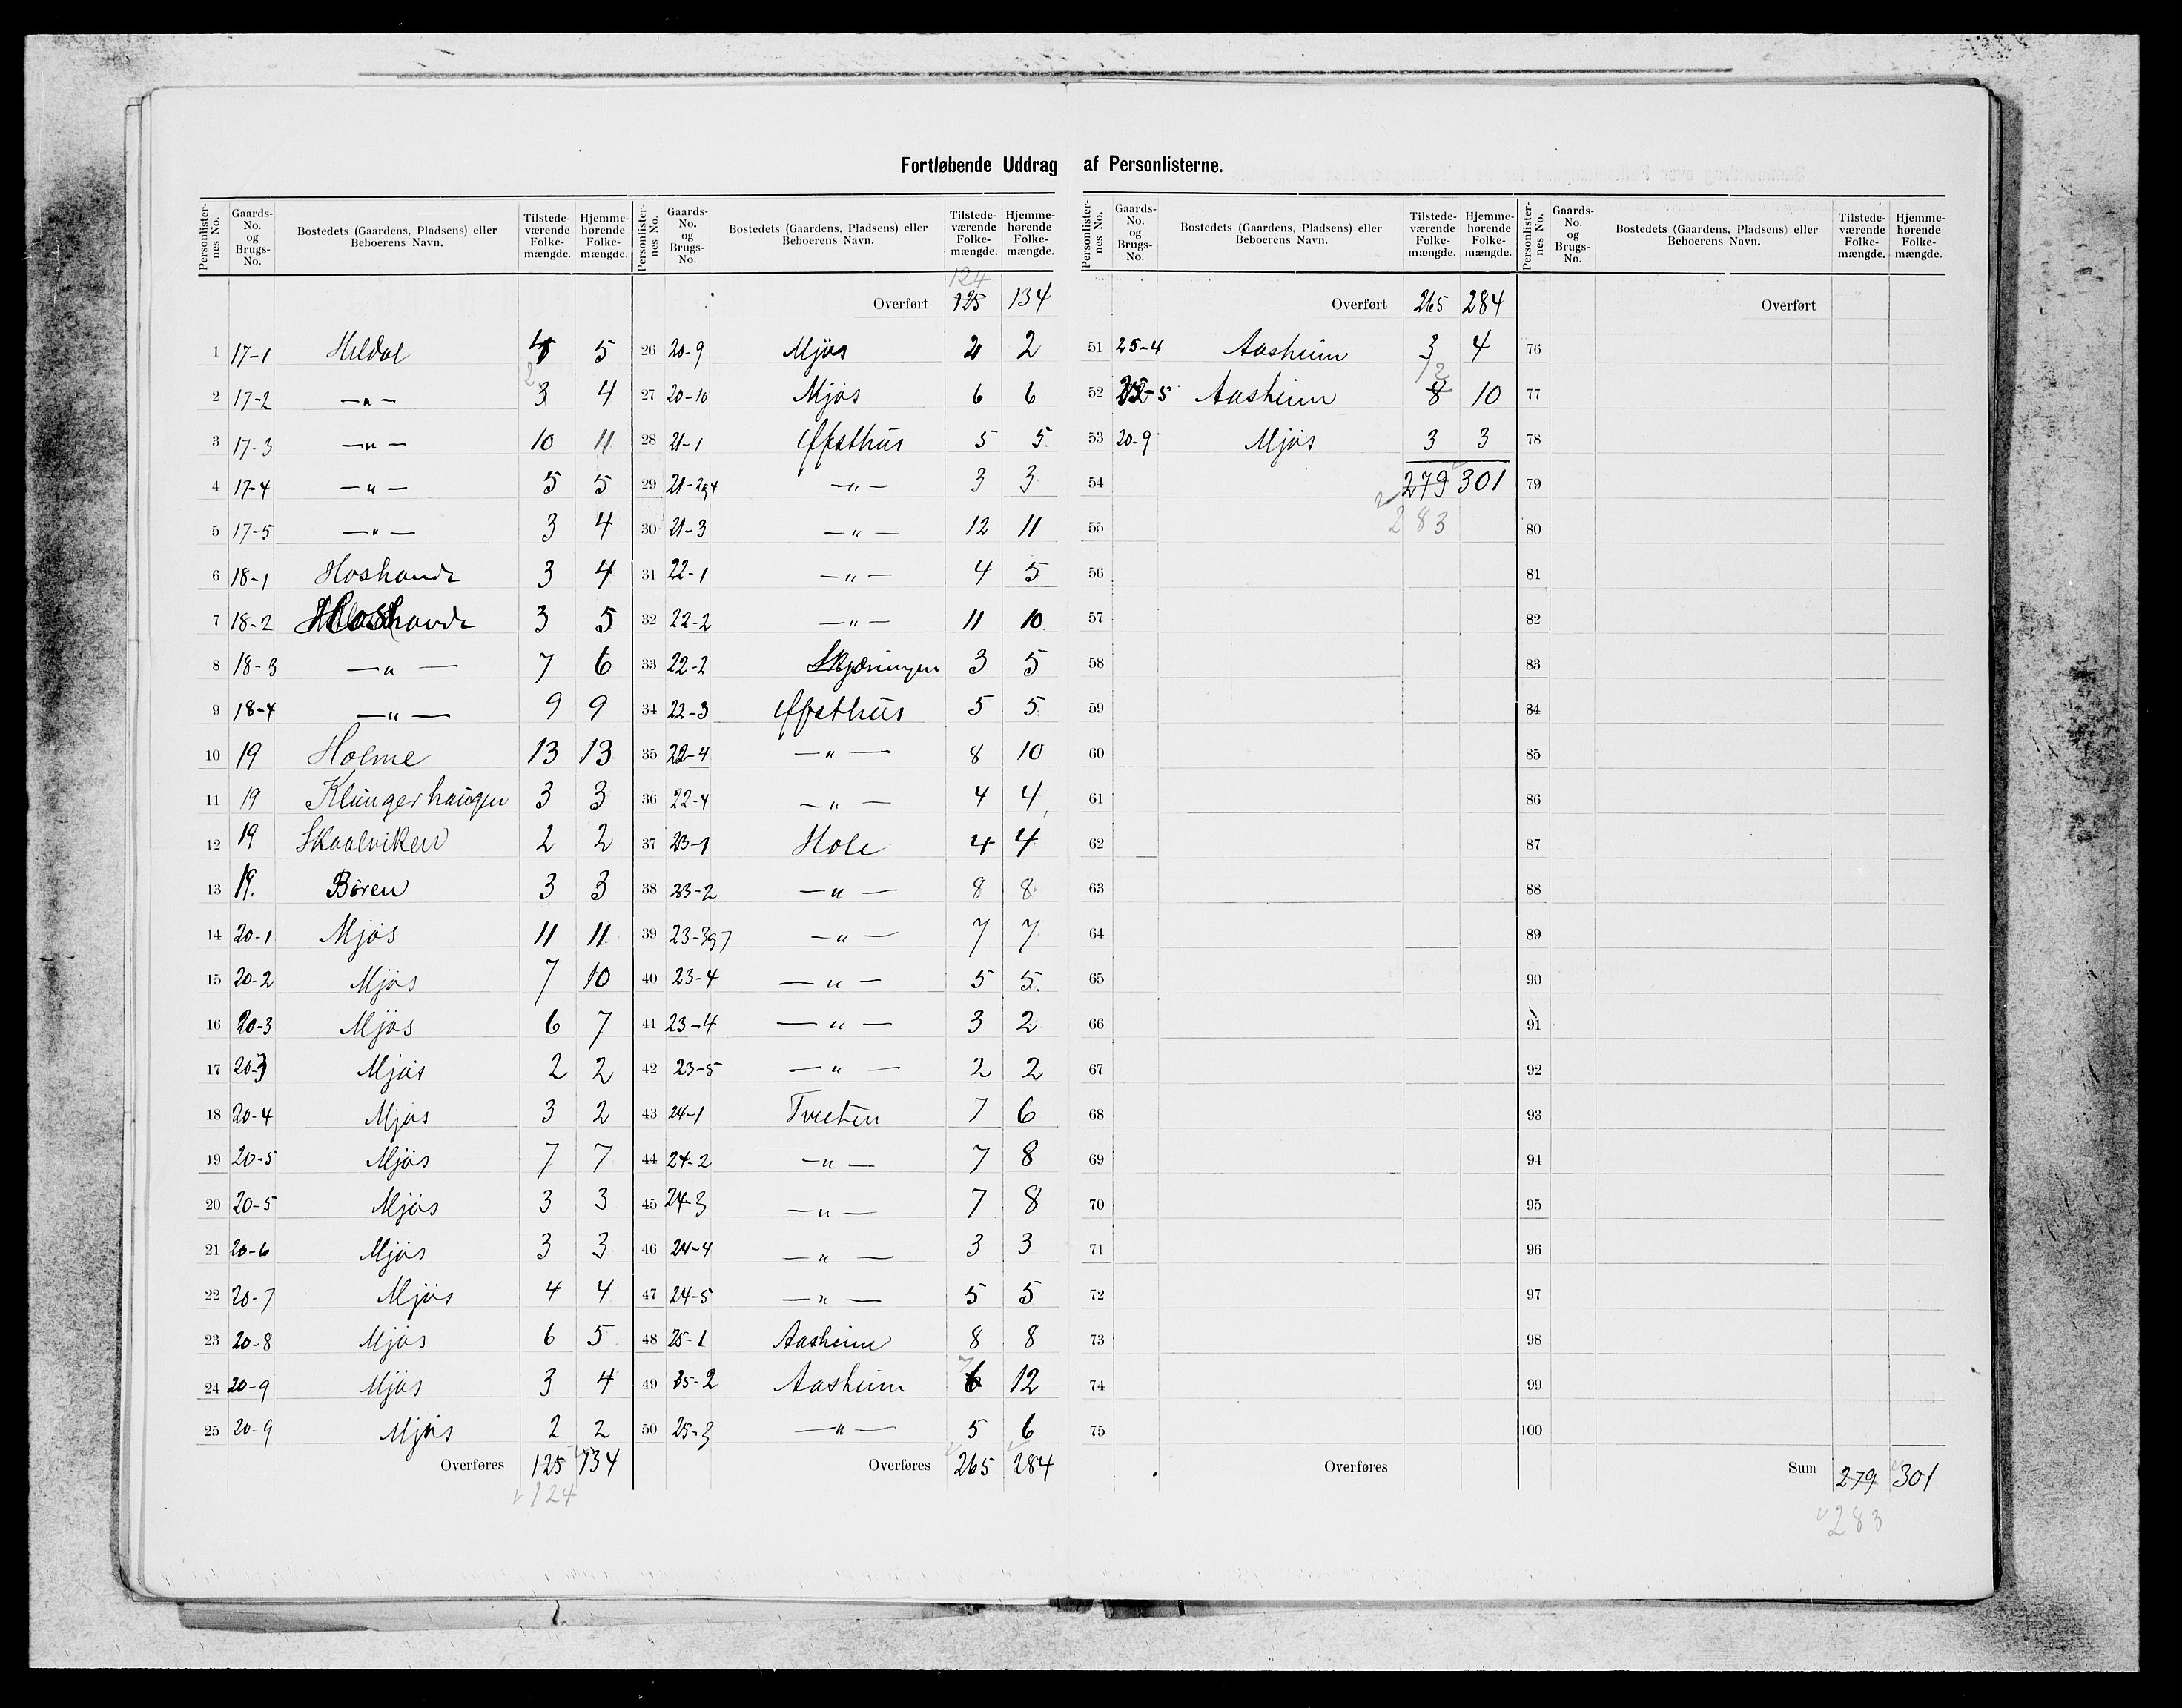 Fortløbende Uddrag af Personlisterne.
Personlister-nes No. | Gaards-No. og Brugs-No. | Bostedets (Gaardens, Pladsens) eller Beboerens Navn. | Tilstede-værende Folke-mængde. | Hjemme-hørende Folke-mængde.
1 17-1 Hildal 5
2 17-2 —"— 3 4
2
3 17-3 —"— 10 11
4 17-4 —"— 5 5
5 17-5 —"— 3 4
6 18-1 3 4
7 18-2 3 5
8 18-3 —"— 7 6
9 18-4 —"— 9 9
10 19 Holme 13 13
11 19 Klungerhaugen 3 3
12 19 Skaalviken 2 2
13 19. Børen 3 3
14 20-1 Mjøs 11 11
15 20-2 Mjøs 7 10
16 20-3 Mjøs 6 7
17 20-3 Mjøs 2 2
18 20-4 Mjøs 3 2
19 20-5 Mjøs 7 7
20 20-5 Mjøs 3 3
21 20-6 Mjøs 3 3
22 20-7 Mjøs 4 4
23 20-8 Mjøs 6 5
24 20-9 Mjøs 3 4
25 20-9 Mjøs 2 2
Overføres 125 134
124
Personlister-nes No. | Gaards-No. og Brugs-No. | Bostedets (Gaardens, Pladsens) eller Beboerens Navn. | Tilstede-værende Folke-mængde. | Hjemme-hørende Folke-mængde.
124
Overført 125 134
26 20-9 Mjøs 2 2
27 20-10 Mjøs 6 6
28 21-1 Opsthus 5 5
29 21-2,4 —"— 3 3
30 21-3 —"— 12 11
31 22-1 —"— 4 5
32 22-2 —"— 11 10
33 22-2 3 5
34 22-3 Opsthus 5 5
35 22-4 —"— 8 10
36 22-4 —"— 4 4
37 23-1 Hole 4 4
38 23-2 —"— 8 8
39 23-3 —"— 7 7
40 23-4 —"— 5 5
41 23-4 —"— 3 2
42 23-5 —"— 2 2
43 24-1 Tveten 7 6
44 24-2 —"— 7 8
45 24-3 —"— 7 8
46 24-4 —"— 3 3
47 24-5 —"— 5 5
48 25-1 Aasheim 8 8
7
49 25-2 Aasheim 6 12
50 25-3 —"— 5 6
Overføres 265 284
Personlister-nes No. | Gaards-No. og Brugs-No. | Bostedets (Gaardens, Pladsens) eller Beboerens Navn. | Tilstede-værende Folke-mængde. | Hjemme-hørende Folke-mængde.
Overført 265 284
51 25-4 Aasheim 3 4
12
52 Aasheim 8 10
53 20-9 Mjøs 3 3
54 279 301
55 283
56
57
58
59
60
61
62
63
64
65
66
67
68
69
70
71
72
73
74
75
Overføres
Personlister-nes No. | Gaards-No. og Brugs-No. | Bostedets (Gaardens, Pladsens) eller Beboerens Navn. | Tilstede-værende Folke-mængde. | Hjemme-hørende Folke-mængde.
Overført
76
77
78
79
80
81
82
83
84
85
86
87
88
89
90
91
92
93
94
95
96
97
98
99
100
Sum 279 301
283